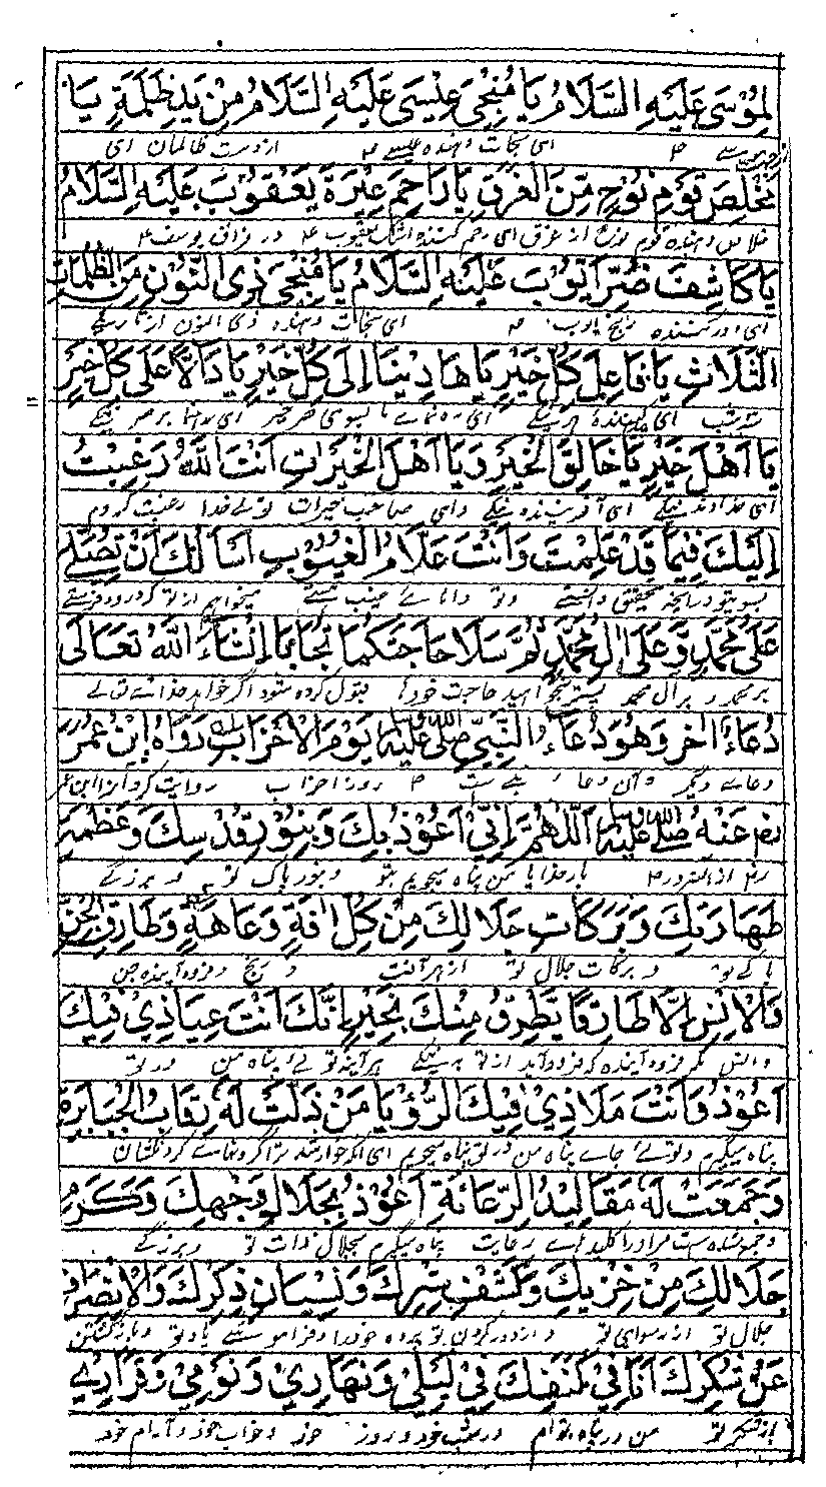 لِمُوْسَى عَلَيْهِ السَّلَامُ يَا مُنْجِيَ عِيْسَى عَلَيْهِ السَّلَامُ مِنْ يَدِ ظَلَمَةٍ يَا
ای نجات دهنده عیسے ۴ از دست ظالمان ای
مُخْلِصَ قَوْمِ نُوْحٍ مِّنَ الْغَرَقِ يَا رَاحِمَ عِبْرَةِ يَعْقُوْبَ عَلَيْهِ السَّلَامُ
خلاص دهنده قوم نوح از غرق ای رحم کننده اشک یعقوب ۴ در فراق یوسف ۴
يَا كَاشِفَ ضُرِّ اَيُّوْبَ عَلَيْهِ السَّلَامُ يَا مُنْجِيَ ذِي النُّوْنِ مِنَ الظُّلُمَاتِ
ای دور کننده رنج ایوب ۴ ای نجات دهنده ذی النون از تاریکے
الثَّلَاثِ يَا فَاعِلَ كُلِّ خَيْرٍ يَا هَادِيْنَا اِلَى كُلِّ خَيْرٍ يَا دَالًّا عَلَى كُلِّ خَيْرٍ
ای کننده هر نیکے ای راه نماے ما بسوی هر خیر ای رهنما بر هر نیکے
يَا اَهْلَ خَيْرٍ يَا خَالِقَ الْخَيْرِ وَيَا اَهْلَ الْخَيْرَاتِ اَنْتَ اللهُ رَغِبْتُ
ای خداوند نیکے ای آفریننده نیکے و ای صاحب خیرات توئے خدا رغبت کردم
اِلَيْكَ فِيْمَا قَدْ عَلِمْتَ وَاَنْتَ عَلَّامُ الْغُيُوْبِ اَسْاَلُكَ اَنْ تُصَلِّيَ
بسوی تو در آنچه تحقیق دانستے و تو داناے غیب هستے میخواهم از تو که درود فرستے
عَلَى مُحَمَّدٍ وَّعَلَى اٰلِ مُحَمَّدٍ ثُمَّ سَلْ حَاجَتَكَ اِنْشَاءَ اللهُ تَعَالَى
بر محمد و بر آل محمد پستر بخواهید حاجت خود را قبول کرده شود اگر خواهد خدا تعالے
دُعَاءٌ اٰخَرُ وَهُوَ دُعَاءُ النَّبِيِّ صَلَّى اللهُ عَلَيْهِ يَوْمَ الْاَحْزَابِ رَوَاهُ ابْنُ عُمَرَ
دعاے دیگر و آن دعاے نبے ست ۴ روز احزاب روایت کرد آنرا ابن عمر
عَنْهُ صَلَّى اللهُ عَلَيْهِ اَللّٰهُمَّ اِنِّيْ اَعُوْذُ بِكَ وَبِنُوْرِ قُدْسِكَ وَعَظَمَةِ
بار خدایا من پناه میجویم بتو و بنور پاک تو و بزرگے
طَهَارَتِكَ وَبَرَكَاتِ جَلَالِكَ مِنْ كُلِّ اٰفَةٍ وَعَاهَةٍ وَطَارِقِ الْجِنِّ
پاکے تو و برکات جلال تو از هر آفت و رنج و فرود آینده جن
وَالْاِنْسِ اِلَّا طَارِقًا يَّطْرُقُ مِنْكَ بِخَيْرٍ اِنَّكَ اَنْتَ عِيَاذِيْ فَبِكَ
و انس مگر فرود آینده که فرود آید از تو به نیکے هر آینه توئے پناه من و در تو
اَعُوْذُ وَاَنْتَ مَلَاذِيْ فَبِكَ اَلُوْذُ يَا مَنْ ذَلَّتْ لَهُ رِقَابُ الْجَبَابِرَةِ
پناه میگیرم و توئے جاے پناه من در تو پناه میجویم ای آنکه خوار شد ترا گردنهاے گردنکشان
وَخَضَعَتْ لَهُ مَقَالِيْدُ الرِّعَايَةِ اَعُوْذُ بِجَلَالِ وَجْهِكَ وَكَرَمِ
کلیدهاے رعایت پناه میگیرم بجلال ذات تو و بزرگے
جَلَالِكَ مِنْ خِزْيِكَ وَكَشْفِ سِتْرِكَ وَنِسْيَانِ ذِكْرِكَ وَالْاِنْصِرَافِ
جلال تو از رسوای تو و از دور کردن تو پرده خود را و فراموشے یاد تو و بازگشتن
عَنْ شُكْرِكَ اَنَا فِيْ كَنَفِكَ فِيْ لَيْلِيْ وَنَهَارِيْ وَنَوْمِيْ وَقَرَارِيْ
از شکر تو من در پناه تو ام در شب خود و روز خود و خواب خود و آرام خود